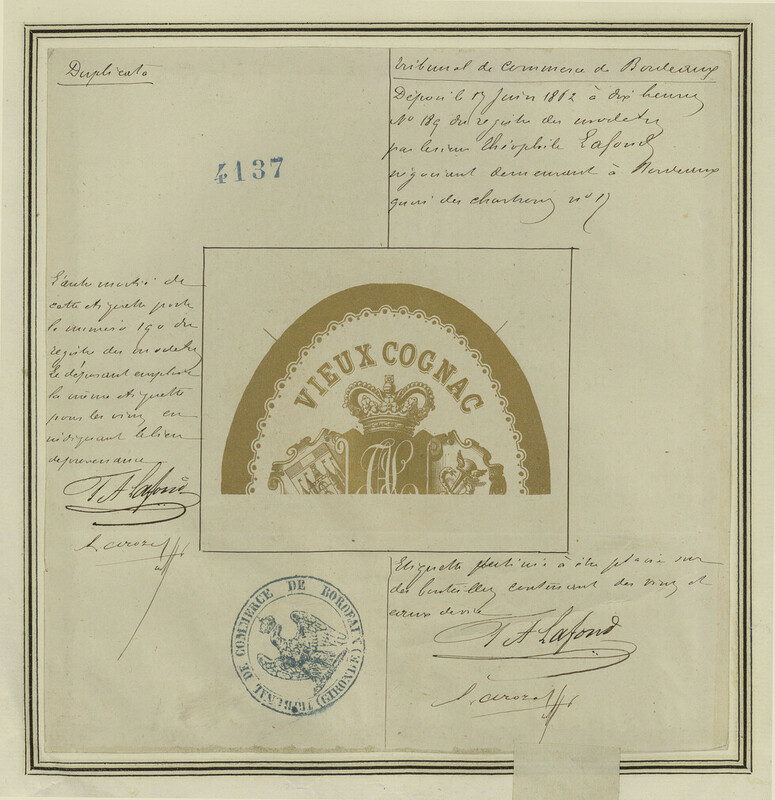 Duplicata
4137
Tribunal de Commerce de Bordeaux
Déposé le 17 Juin 1862 à dix heures
No 189 du registre des modeles
par le sieur Théophile Lafond
négociant demeurant à Bordeaux
quai des chartrons no 17
L'autre moitié de
cette etiquette porte
le numero 190 du
registre des modeles
Le déposant emploie
la même etiquette
pour les vins en
indiquant le lieu
de provenance
T A Lafond
VIEUX COGNAC
Etiquette destinée à être placée sur
des bouteilles contenant des vins et
eaux de vie
T A Lafond
TRIBUNAL DE COMMERCE DE BORDEAUX (GIRONDE)